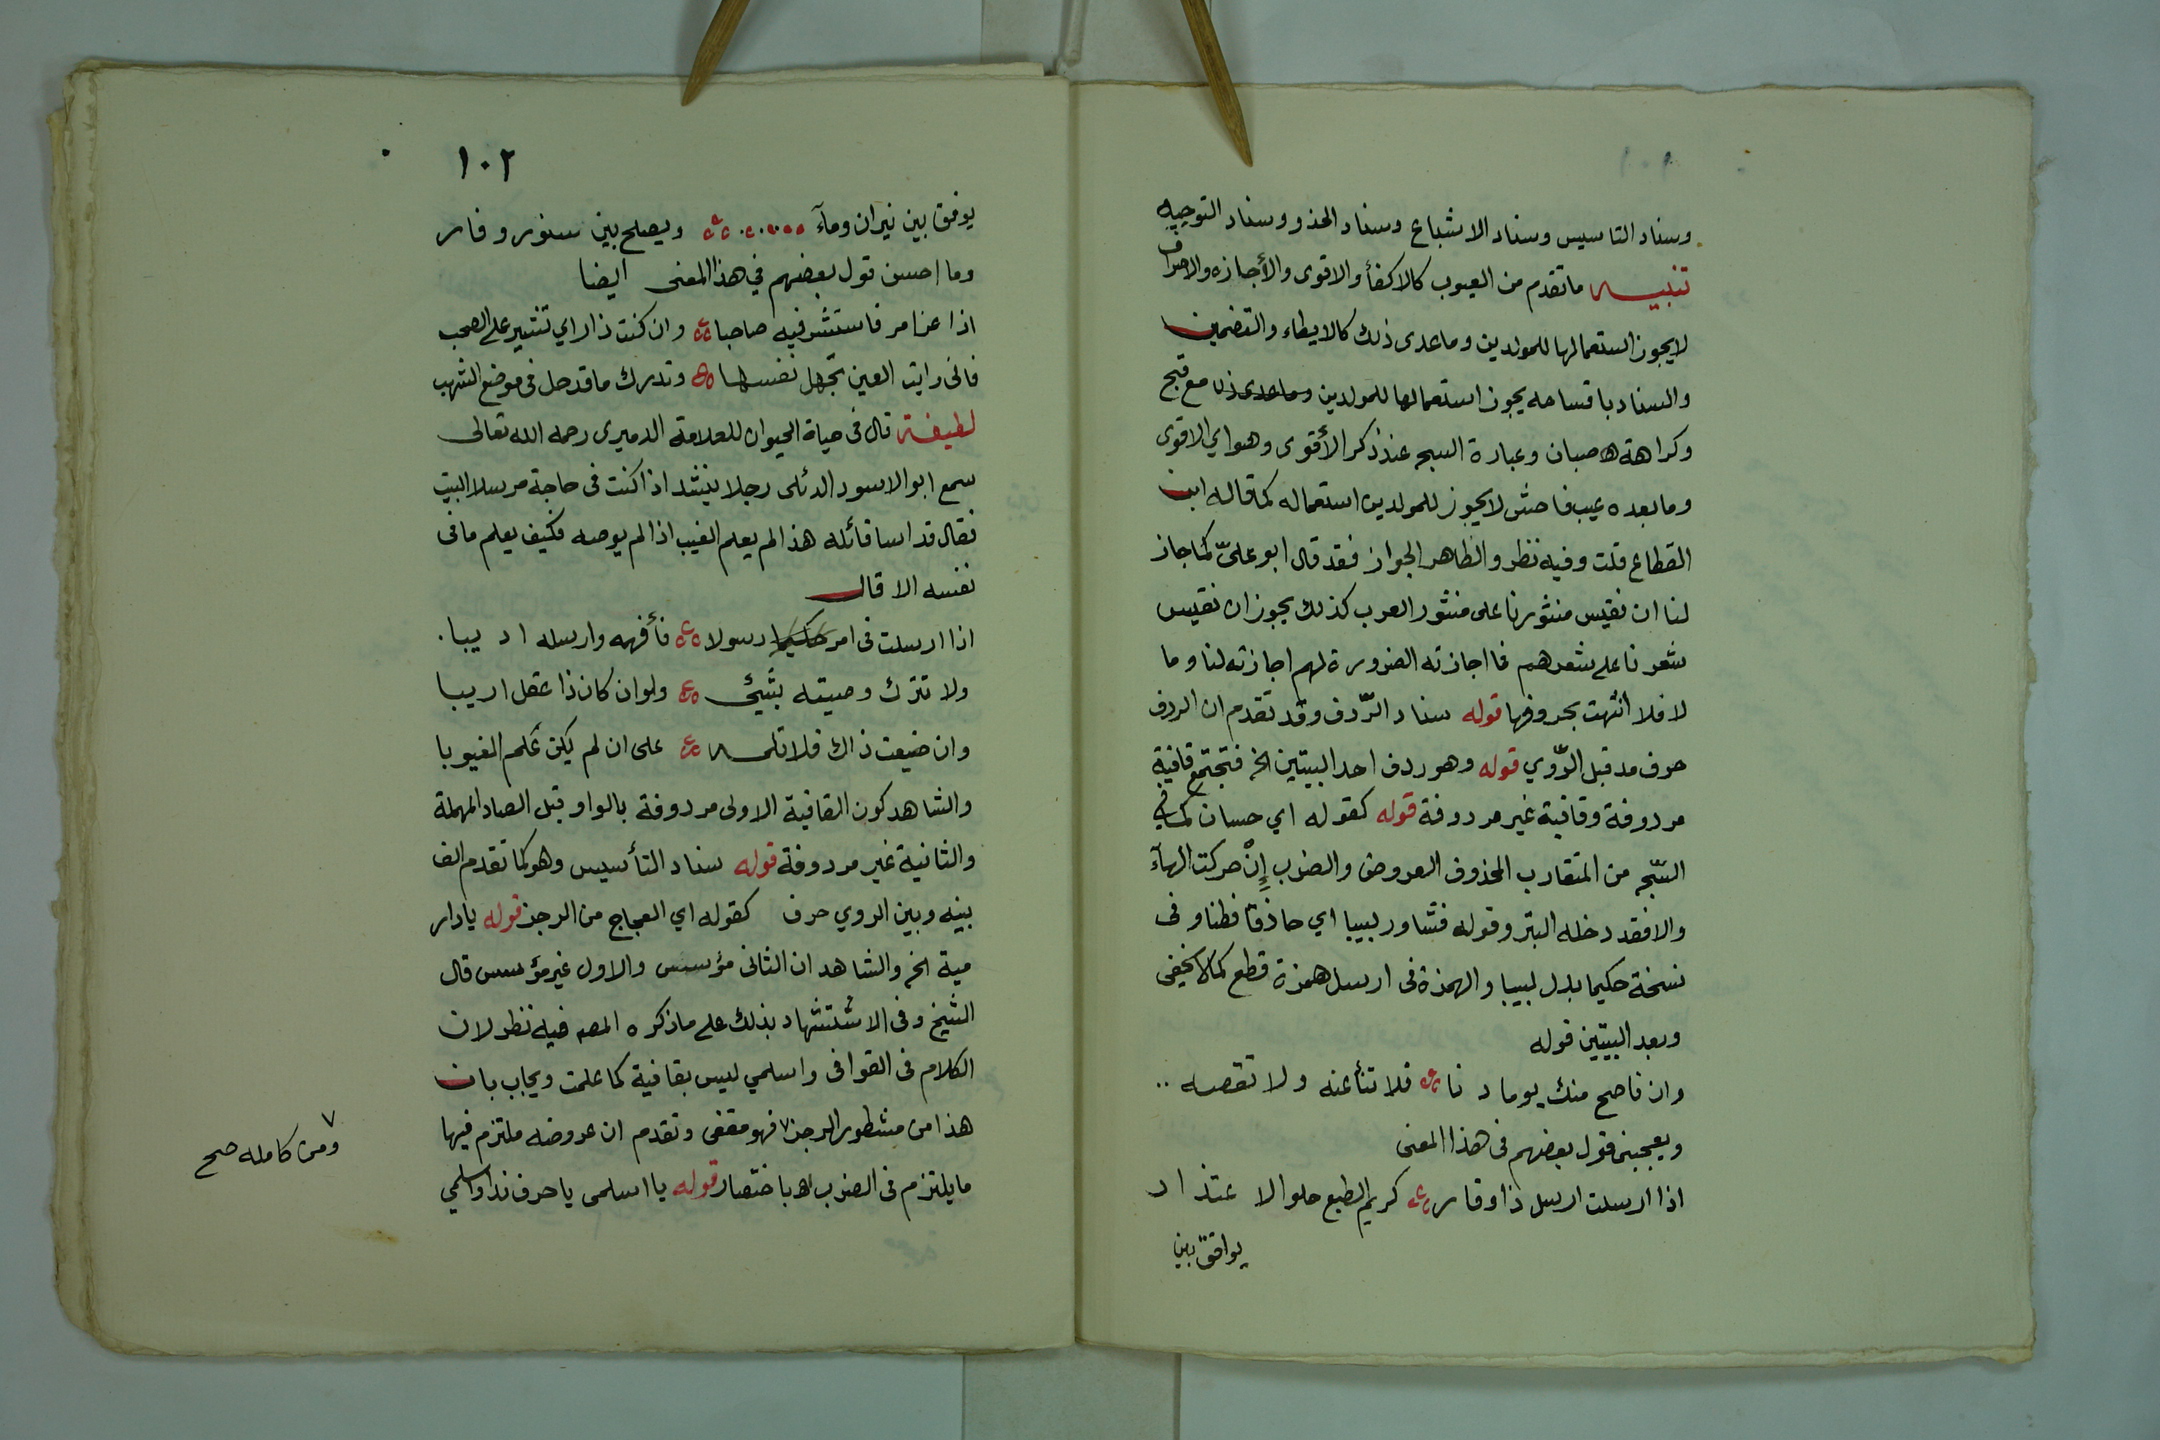 وسناد التاسيس وسناد الاشباع وسناد الحذو وسناد التوجيه
تنبيه ما تقدم من العيوب كالاكفأ والاقوى والأجازه والاصراف
لا يجوز استعمالها للمولدين وما عدى ذلك كالايطاء والتضمين
والسناد باقسامه يجوز استعمالها للمولدين وما عدى ذلك مع قبح
وكراهة اه صبان وعبارة السجه عند ذكر الأقوى وهو اي الاقوى
وما بعده عيب فاحش لا يجوز للمولدين استعماله كما قاله ابن
القطاع قلت وفيه نظر والظاهر الجواز فقد قال ابو عليّ كما جاز
لنا ان نقيس منثورنا على منثور العرب كذلك يجوز ان نقيس
شعرنا على شعرهم فما اجازته الضرورة لهم اجازته لنا وما
لا فلا انتهت بحروفها قوله سناد الرّدف وقد تقدم ان الردف
حرف مد قبل الرّوي قوله وهو ردف احد البيتين الخ فتجتمع قافية
مردوفة وقافية غير مردوفة قوله كقوله اي حسان كما في
السّجه من المتقارب المحذوف العروض والضرب إنْ حركت الهآء
والا فقد دخله البتر وقوله فشاور لبيبا اي حاذقا فطنا وفى
نسخة حكيما بدل لبيبا والهمزة فى ارسل همزة قطع كما لا يخفى
وبعد البيتين قوله
وان ناصح منك يوما دنا فلا تنأ عنه ولا تقصه
ويعجبنى قول بعضهم فى هذا المعنى
اذا ارسلت ارسل ذا وقار كريم الطبع حلو الاعتذار
يوافق بين
١٠٢
يوفق بين نيران ومآء ويصلح بين سنور وفار
وما احسن قول بعضهم في هذا المعنى ايضا
اذا عن امر فاستشر فيه صاحبا وان كنت ذا راي تشير على الصحب
فانى رايت العين تجهل نفسها وتدرك ما قد حل فى موضع الشهب
لطيفة قال فى حياة الحيوان للعلامة الدميرى رحمه الله تعالى
سمع ابو الاسود الدئلى رجلا ينشد اذا كنت فى حاجة مرسلا البيت
فقال قد اسا قائله هذا لم يعلم الغيب اذا لم يوصه فكيف يعلم ما فى
نفسه الا قال
اذا ارسلت فى امر حكيما رسولا فأفهمه وارسله اديبا
ولا تترك وصيته بشيئ ولو ان كان ذا عقل اريبا
وان ضيعت ذاك فلا تلمه على ان لم يكن علم الغيوبا
والشاهد كون القافية الاولى مردوفة بالواو قبل الصاد المهملة
والثانية غير مردوفة قوله سناد التأسيس وهو كما تقدم الف
بينه وبين الروي حرف كقوله اي العجاج من الرجز قوله يا دار
مية الخ والشاهد ان الثانى مؤسس والاول غير مؤسس قال
الشيخ وفى الاستشهاد بذلك على ما ذكره المصه فيه نظر لان
الكلام فى القوافى واسلمي ليس بقافية كما علمت ويجاب بان
هذا من مشطور الرجز ٧ فهو مقفى وتقدم ان عروضه ملتزم فيها
ما يلتزم فى الضرب اه باختصار قوله يا اسلمى يا حرف ندا واسلمي
٧
ومن كامله صح